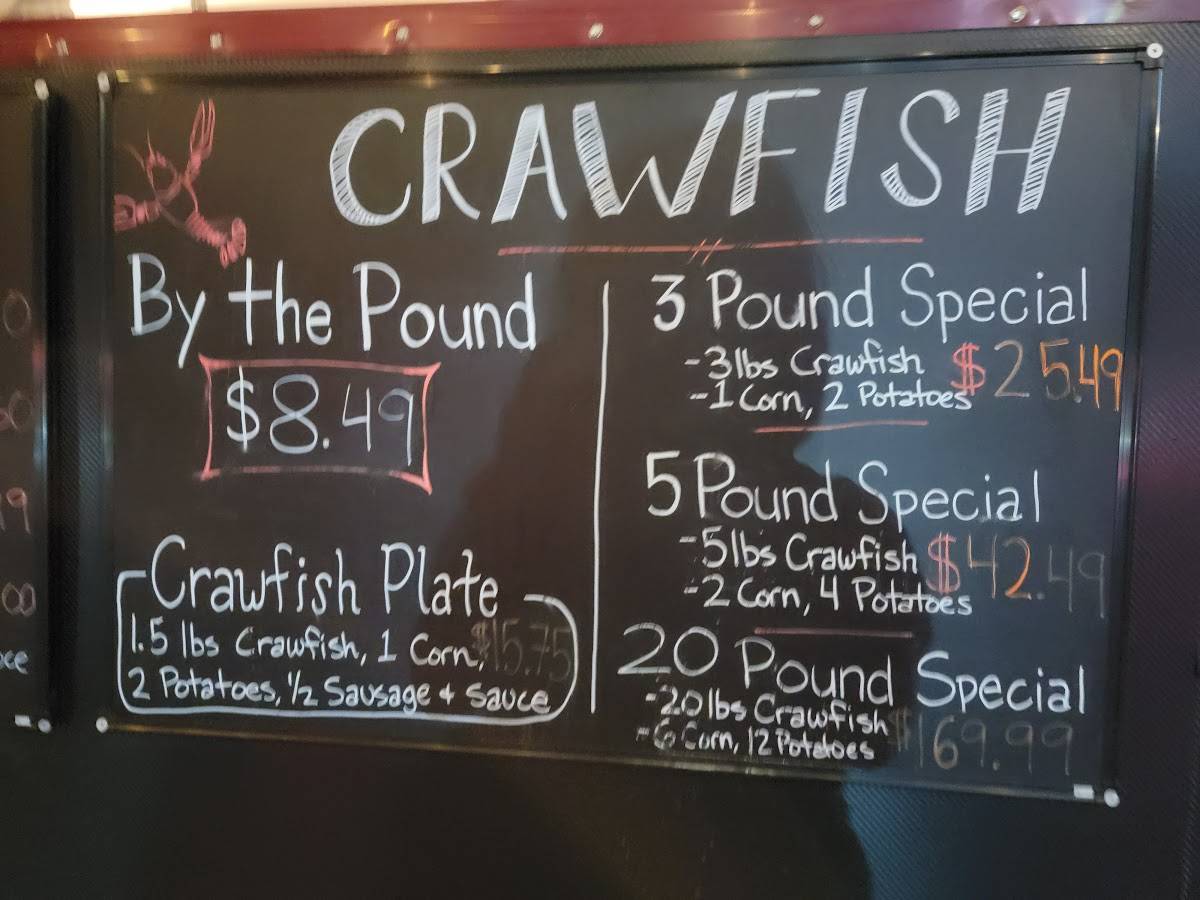 CRAWFISH
By the Pound
$8.49
Crawfish Plate
1.5 lbs Crawfish, 1 Corn, $15.75
2 Potatoes, 1/2 Sausage + Sauce
3 Pound Special
-3lbs Crawfish $25.49
-1 Corn, 2 Potatoes
5 Pound Special
-5lbs Crawfish $42.49
-2 Corn, 4 Potatoes
20 Pound Special
-20lbs Crawfish
-6 Corn, 12 Potatoes $169.99